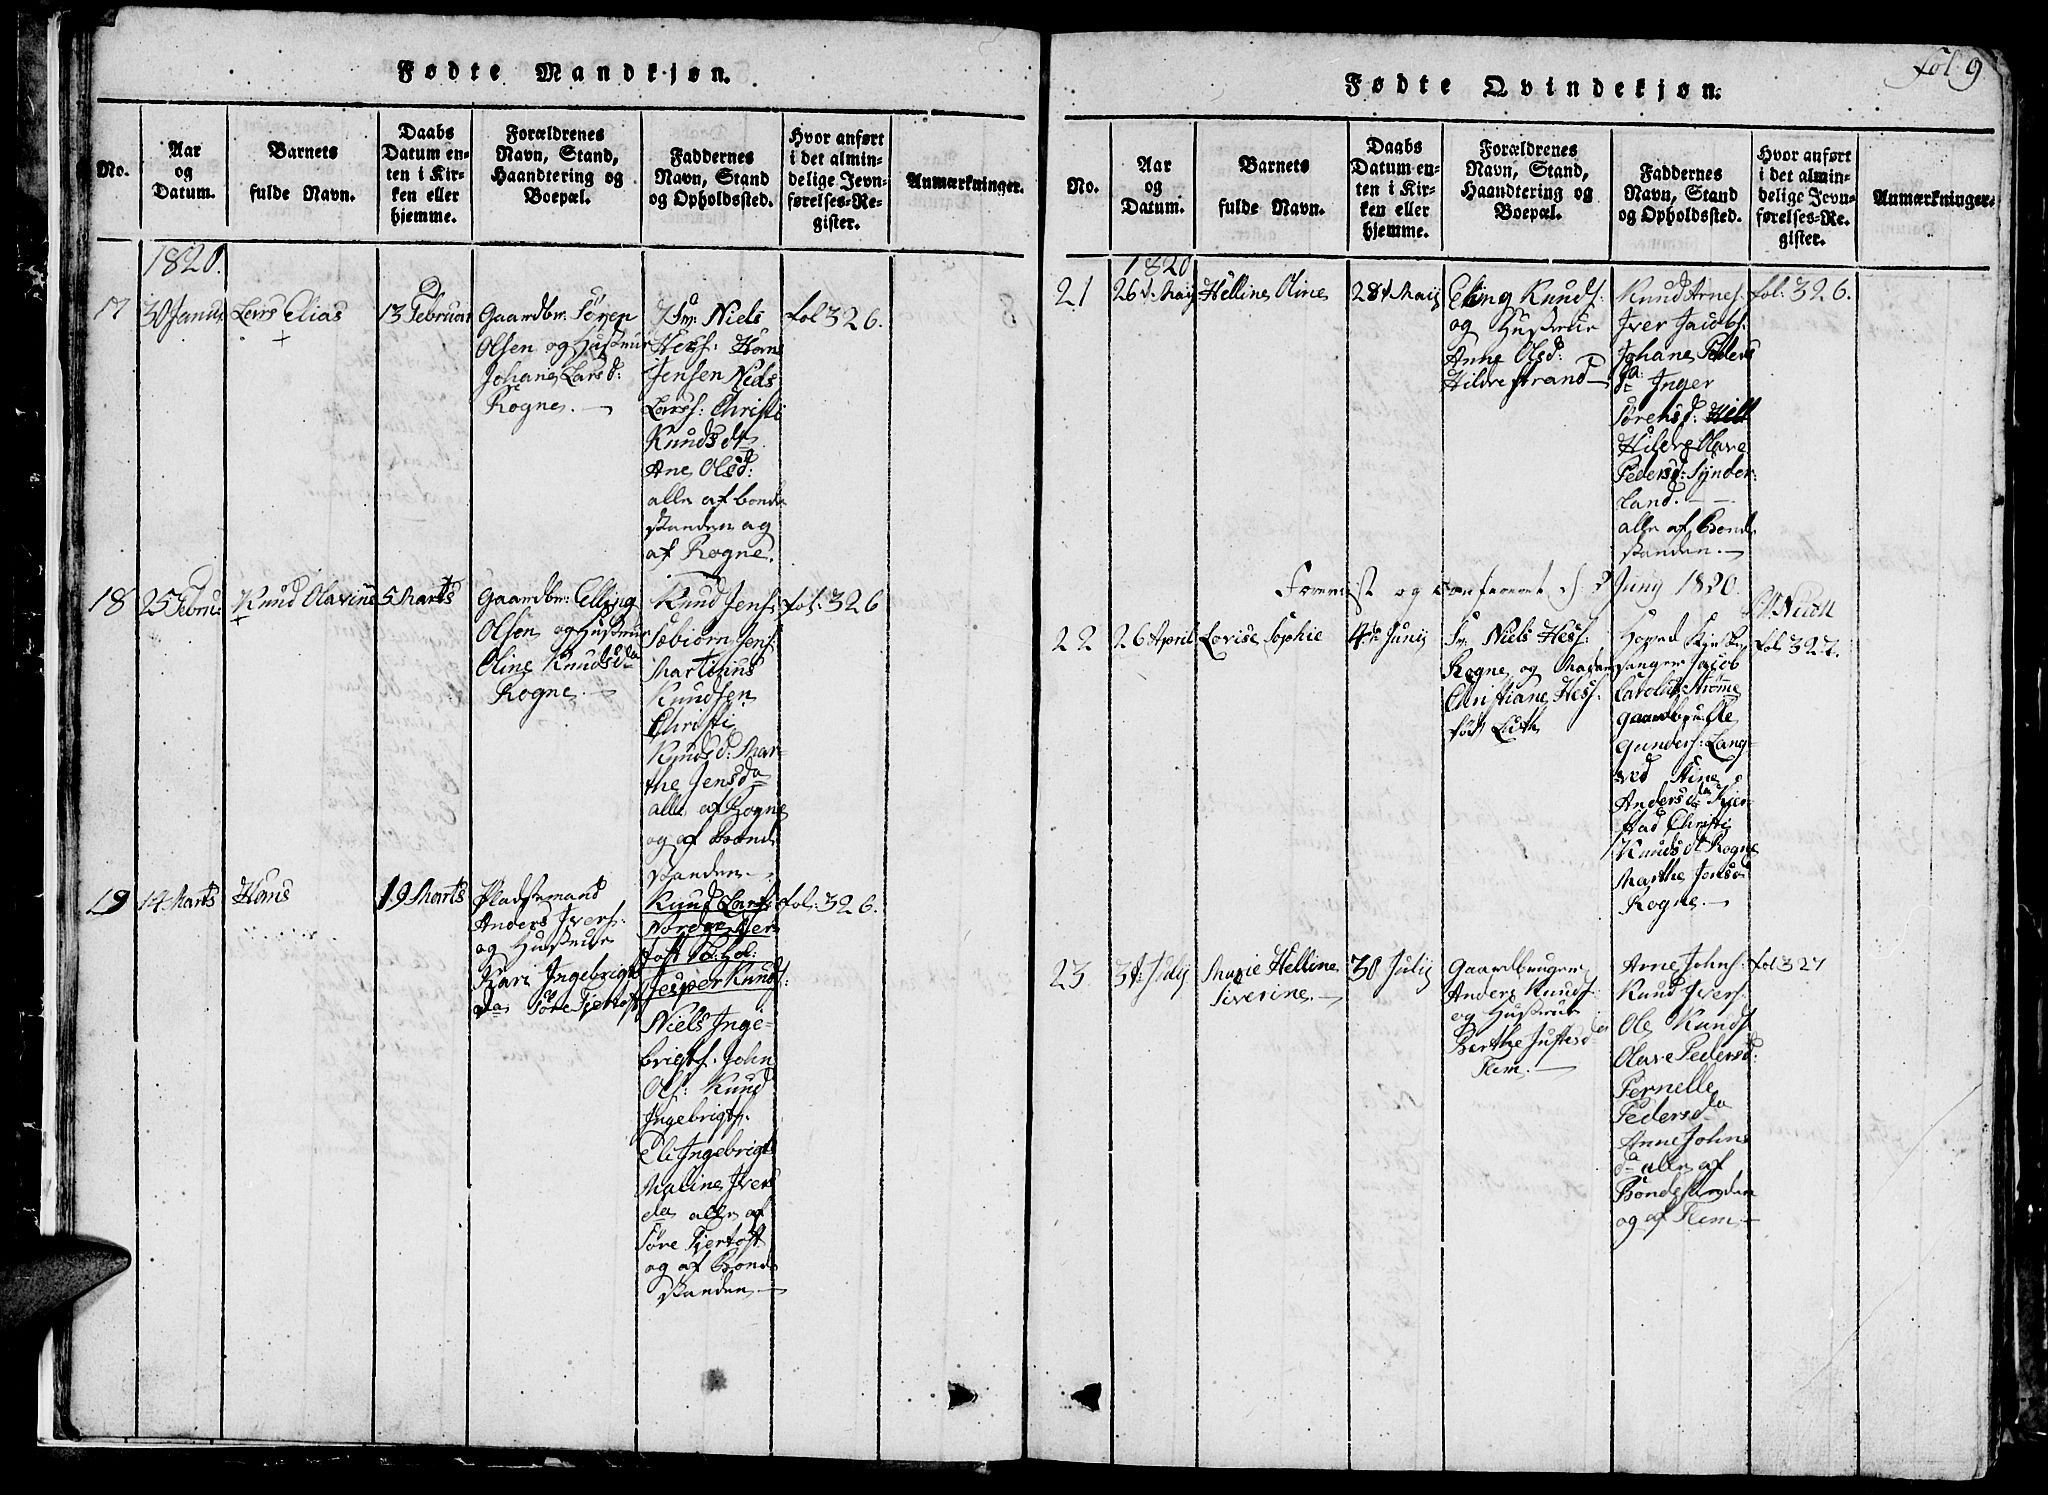 Fødte Mandkjøn.
No.
Aar
og
Datum.
Barnets
fulde Navn.
Daabs
Datum en-
ten i Kir-
ken eller
hjemme.
Forældrenes
Navn, Stand,
Haandtering og
Boepæl.
Faddernes
Navn, Stand
og Opholdssted.
Hvor anført
i det almin-
delige Jevn-
førelses-Re-
gister.
Anmærkninger.
1820.
17
30 Janu:
Lars Elias
13 Februar
Gaardbr: Sören
Olsen og Hustrue
Johane Larsd:
Rogne. —
Niels
Hess: Hans
Jensen Niels
Larss: Christi
Knudsdt
Ane Olsd:
alle af bonde
standen og
af Rogne.
fol 326.
18
25 Febru:
Knud Olavine
5 Marts
Gaardbr: Elling
Olsen og Hustrue
Oline Knudsda
Rogne. —
Knud Jens:
Sæbiörn Jens:
Martinus
Knudsen
Christi
Knudsd: Mar-
the Jensda
alle af Rogne
og af Bonde
standen.
fol: 326
19
14 Marts
Hans
19 Marts
Pladsemand
Anders Ivers:
og Hustrue
Kari Ingebrigts
da Söre Fjertoft
Knud Larss:
Nordre Fjer
toft
Jesper Knuds:
Niels Inge-
brigts: John
Ols: Knud
Ingebrigts:
Eli Ingebrigts
Maline Ivers
da alle af
Söre Fjertoft
og af Bonde
standen. —
fol: 326.
fol 9
Fødte Qvindekjøn.
No.
Aar
og
Datum.
Barnets
fulde Navn.
Daabs
Datum en-
ten i Kir-
ken eller
hjemme.
Forældrenes
Navn, Stand,
Haandtering og
Boepæl.
Faddernes
Navn, Stand
og Opholdssted.
Hvor anført
i det almin-
delige Jevn-
førelses-Re-
gister.
Anmærkninger.
1820
21
26 d. Maij
Helline Oline
28 d Maij
Elling Knuds:
og Hustrue
Anne Olsd:
Hildrestrand —
Knud Arnes:
Iver Jacobs:
Johane Peders
da: Inger
Sörensd:
Hildre Olave
Pedersd: Synder-
land. —
alle af Bonde
standen. —
fol: 326.
og confereret d. 2 Juny 1820.
22
26 April
Lovise Sophie
4de Junij
Sr. Niels Hess:
Rogne og Madam
Christiane Hess:
föd Lüth
Kirke
sanger Jacob
Strømme
Gunders: Lang-
ved Stine
Andersda Kier-
stad Christi
Knudsdt Rogne
Marthe Jensd
Rogne. —
fol 327.
23
3d: Julij
Marie Helline
Siverine. —
30 Julij
Gaardbruger
Anders Knuds:
og Hustrue
Berthe Justesda
Flem. —
Arne Johns:
Knud Ivers:
Ole Knuds
Olave Pedersd:
Pernelle
Pedersda
Anne Johns
da alle af
Bondestanden
og af Flem —
fol 327